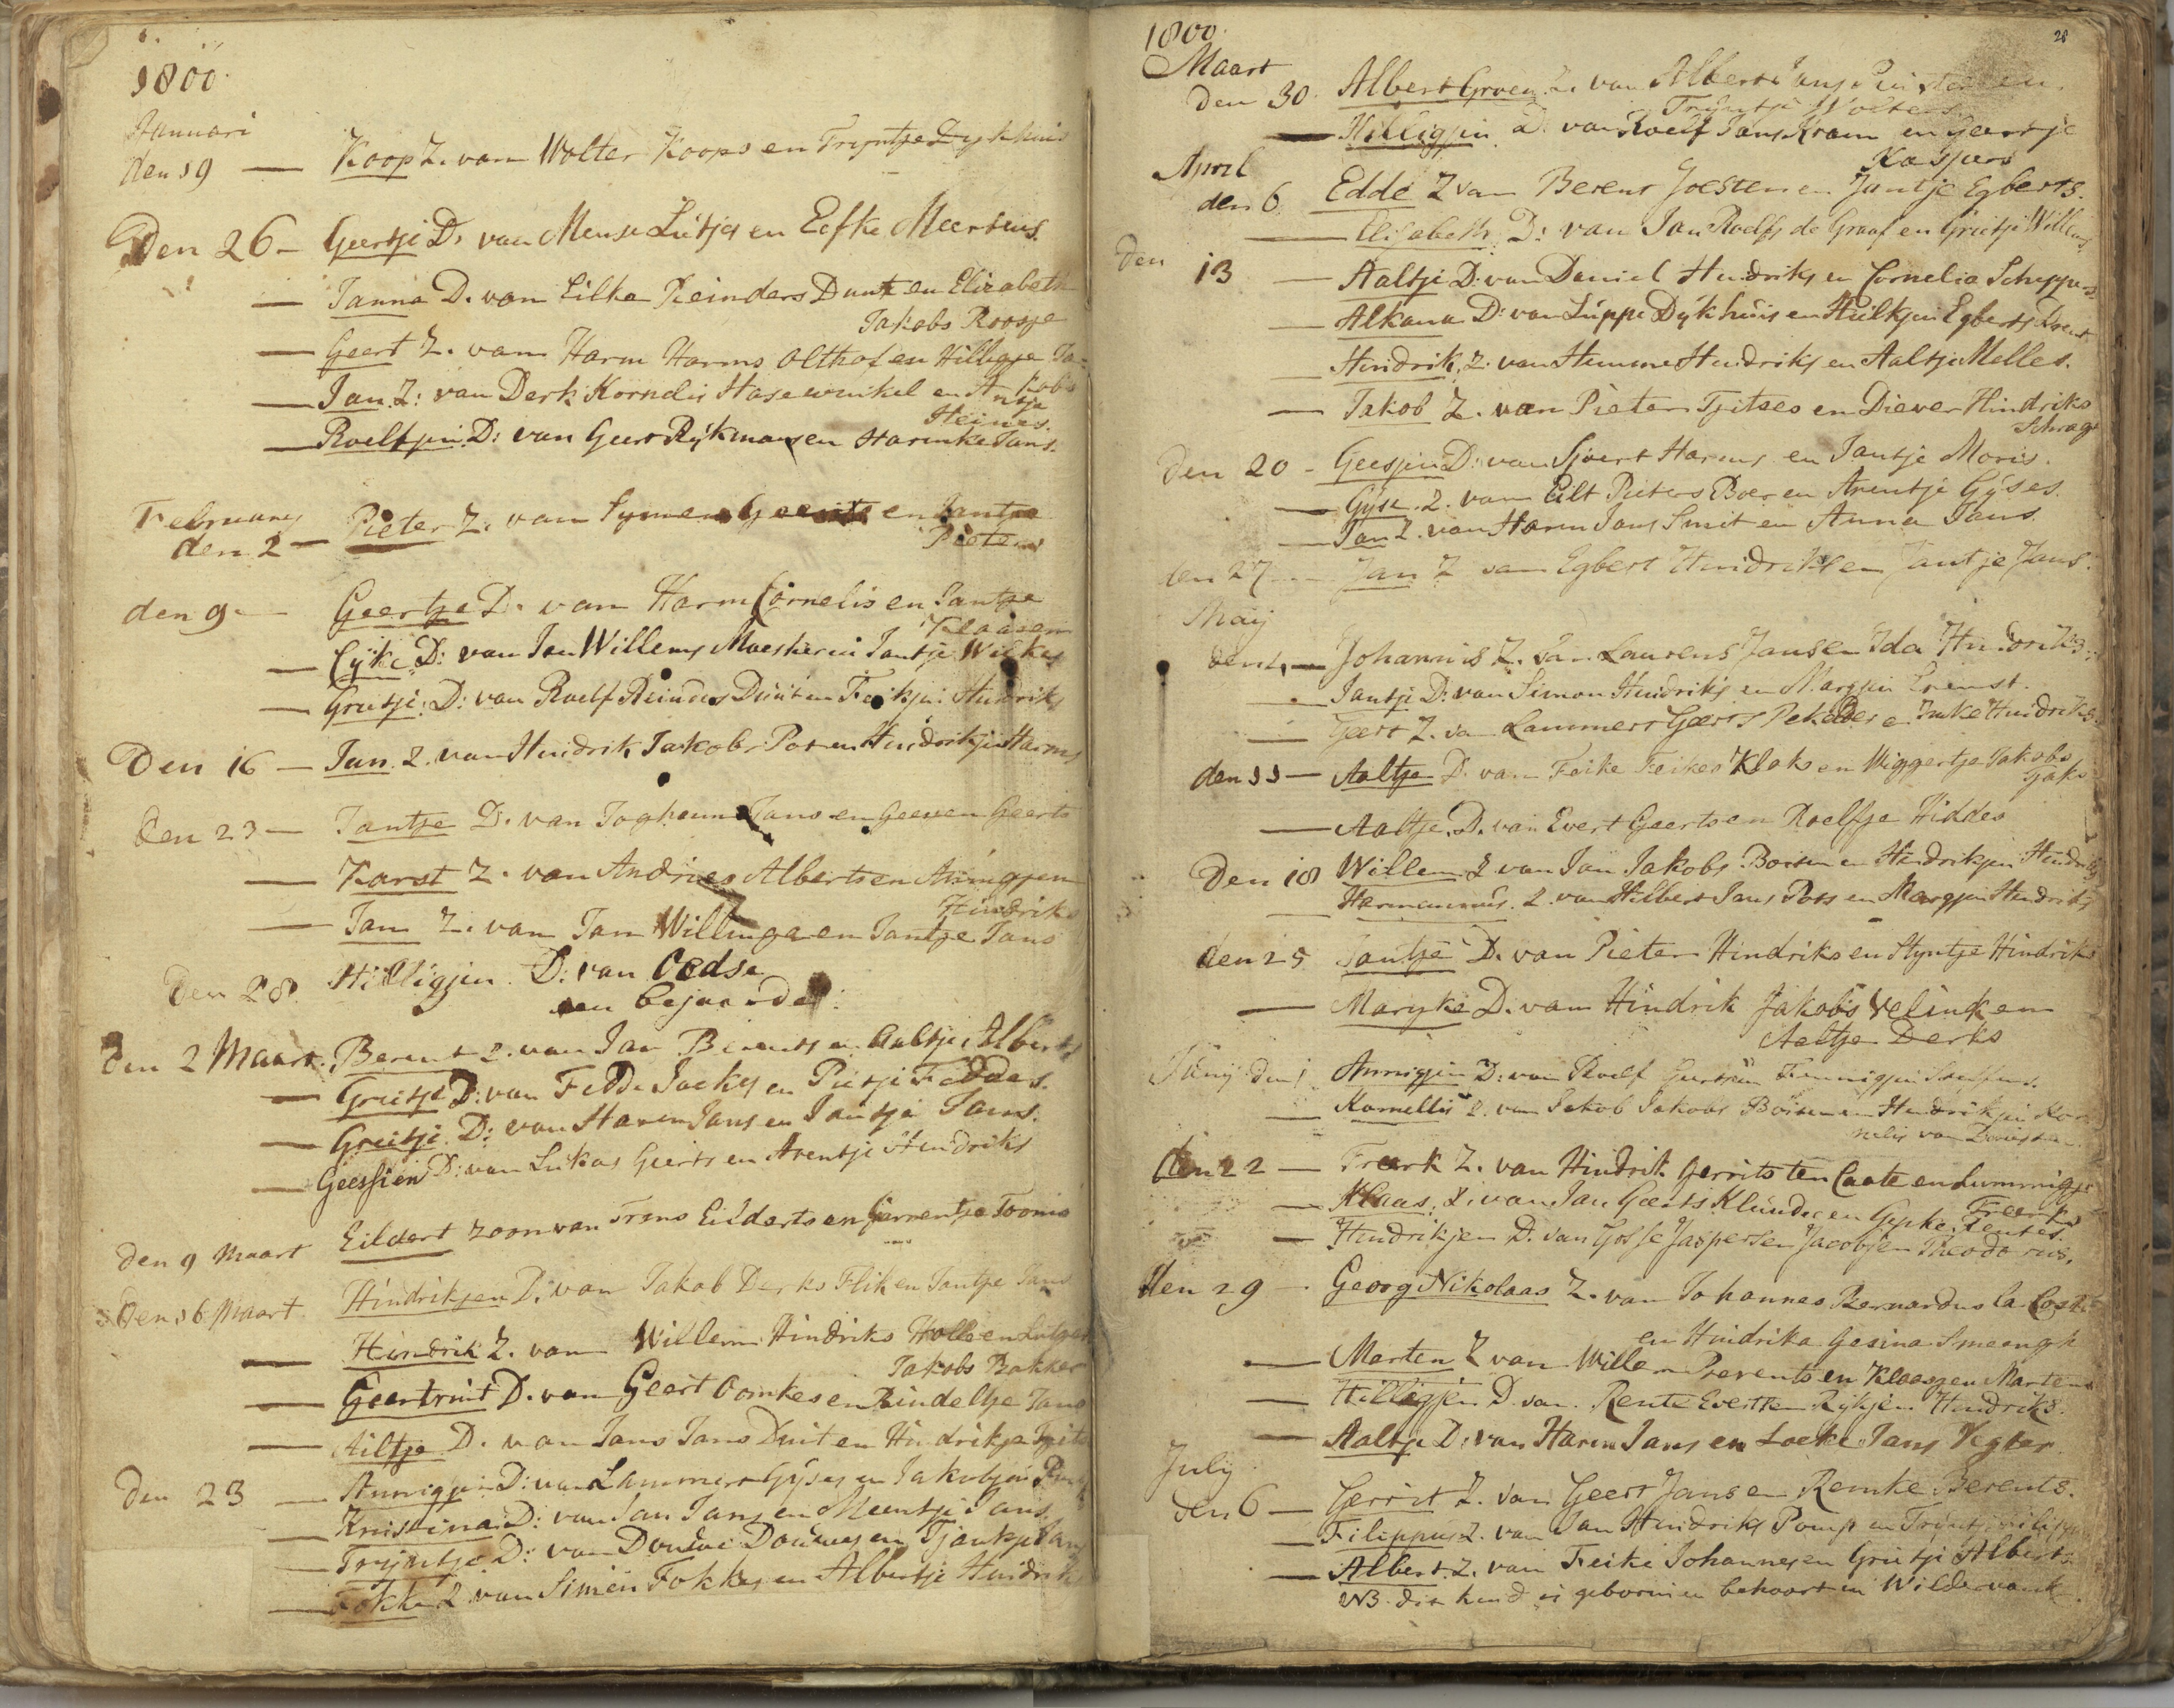 1800.
Januari
den 19 — Koop Z. van Wolter Koops en Tryntje Dykhuis
Den 26 — Geertje D. van Mense Luitjes en Eefke Meertens.
— Janna D. van Eilke Reinders Dunt en Elizabeth
Jakobs Roosje
— Geert Z. van Harm Harms Olthof en Hilligje Ja-
kobs
— Jan Z: van Derk Kornelis Hasewinkel en Antje
Heines.
— Roelfjen D: van Geert Rijkmans en Harmke Jans.
February
den 2 — Pieter Z. van Symen Geerts en Jantje
Pieters
den 9 — Geertje D. van Harm Cornelis en Jantje
Klaasen
— Eijke D: van Jan Willems Maesker en Jantje Wilkes
— Grietje D: van Roelf Reinders Duut en Feikjen Hindriks
Den 16 — Jan Z. van Hindrik Jakobs Pot en Hindrikjen Harms
Den 23 — Jantje D. van Joghaum Jans en Geesen Geerts
— Karst Z. van Andries Alberts en Annigjen
Hindriks
— Jan Z. van Jan Willinga en Jantje Jans
Den 28. Hilligjen D: van Oedse
een bejaarde.
Den 2 Maart. Berent Z. van Jan Berents en Aaltje Alberts
— Grietje D: van Fedde Jackes en Pietje Feddes.
— Grietje D: van Harm Jans en Jantje Jans.
— Geessien D: van Lukas Geerts en Arentje Hindriks
den 9 Maart Eildert zoon van Frans Eilderts en Gerrentje Toonis
Den 16 Maart Hindrikjen D: van Jakob Derks Flik en Jantje Jans
— Hindrik Z. van Willem Hindriks Holle en Lutger
Jakobs Bakker
— Geertruit D. van Geert Oomkes en Rindeltje Jans
— Ailtje D. van Jans Jans Duit en Hindrikje
den 23 — Annigjen D: van Lammert Gyses en Jakobjen
— Kristina D: van Jan Jans en Meentje Jans.
— Tryntje D: van Douwe Douwes en Tjaukje Jans
— Fokke Z. van Simen Fokkes en Albertje Hindriks
28
1800.
Maart
den 30. Albert Groen Z. van Albert Jans Puister en
Tryntje Wolters.
— Hilligjen D. van Roelf Jans Kram en Geertje
Kaspers
April
den 6. Edde Z van Berent Joesten en Jantje Egberts.
— Elisabeth D: van Jan Roelfs de Graaf en Grietje Willems
den 13 — Aaltje D: van Daniel Hindriks en Cornelia Scheppers
— Alkana D: van Luppe Dykhuis en Hilkjen Egberts Drent
— Hindrik Z: van Hemme Hindriks en Aaltje Melles.
— Jakob Z. van Pieter Tjitses en Diever Hindriks
Schrage
Den 20 - Geesjen D: van Sjoert Harms en Jantje Moris.
— Gyse Z. van Eilt Pieters Boer en Arentje Gyses.
— Jan Z. van Harm Jans Smit en Anna Jans
den 27 — Jan Z van Egbert Hindriks en Jantje Jans.
Maij
den 4 — Johannis Z. van Laurens Jansen Ida Hindriks.
— Jantje D: van Simon Hindriks en Margjen Ernst.
— Geert Z. van Lammert Geerts Pekelder en Imke Hindriks
den 11 — Aaltje D. van Feike Feikes Klok en Wiggertje Jakobs
— Aaltje D. van Evert Geerts en Roelfje Hiddes
Den 18 Willem Z van Jan Jakobs Boiten en Hindrikjen Hindriks
— Harmannus Z. van Hilbert Jans Pots en Margjen Hindriks
den 25 Jantje D. van Pieter Hindriks en Styntje Hindriks
— Maryke D. van Hindrik Jakobs Velink en
Aeltje Derks
Junij den 1. Annigjen D: van Roelf Geerts en Fennigjen Steffens.
— Kornellis Z. van Jakob Jakobs Boiten en Hindrikjen Kor
nelis van
den 22 — Freerk Z. van Hindrik Gerrits ten Caate en Lummigje
Freerks
— Klaas Z. van Jan Geerts Klunder en Gepke Rentes.
— Hindrikjen D. van Gosse Jaspers en Jacobjen Theodorus.
Den 29 - Georg Nikolaas Z. van Johannes Bernardus la Coste
en Hindrika Gesina Smeengh
— Marten Z van Willem Berents en Klaasjen Martens
— Hilligjen D. van Rente Everts en Rykjen Hindriks.
— Aaltje D: van Harm Jans en Loeke Jans Vegter
July
den 6 — Gerrit Z. van Geert Jans en Remke Berents.
— Filippus Z. van Jan Hindriks Pomp en Tryntje Filippus
— Albert Z. van Feike Johannes en Grietje Alberts.
NB. dit kind is geboren en behoort in Wildervank.